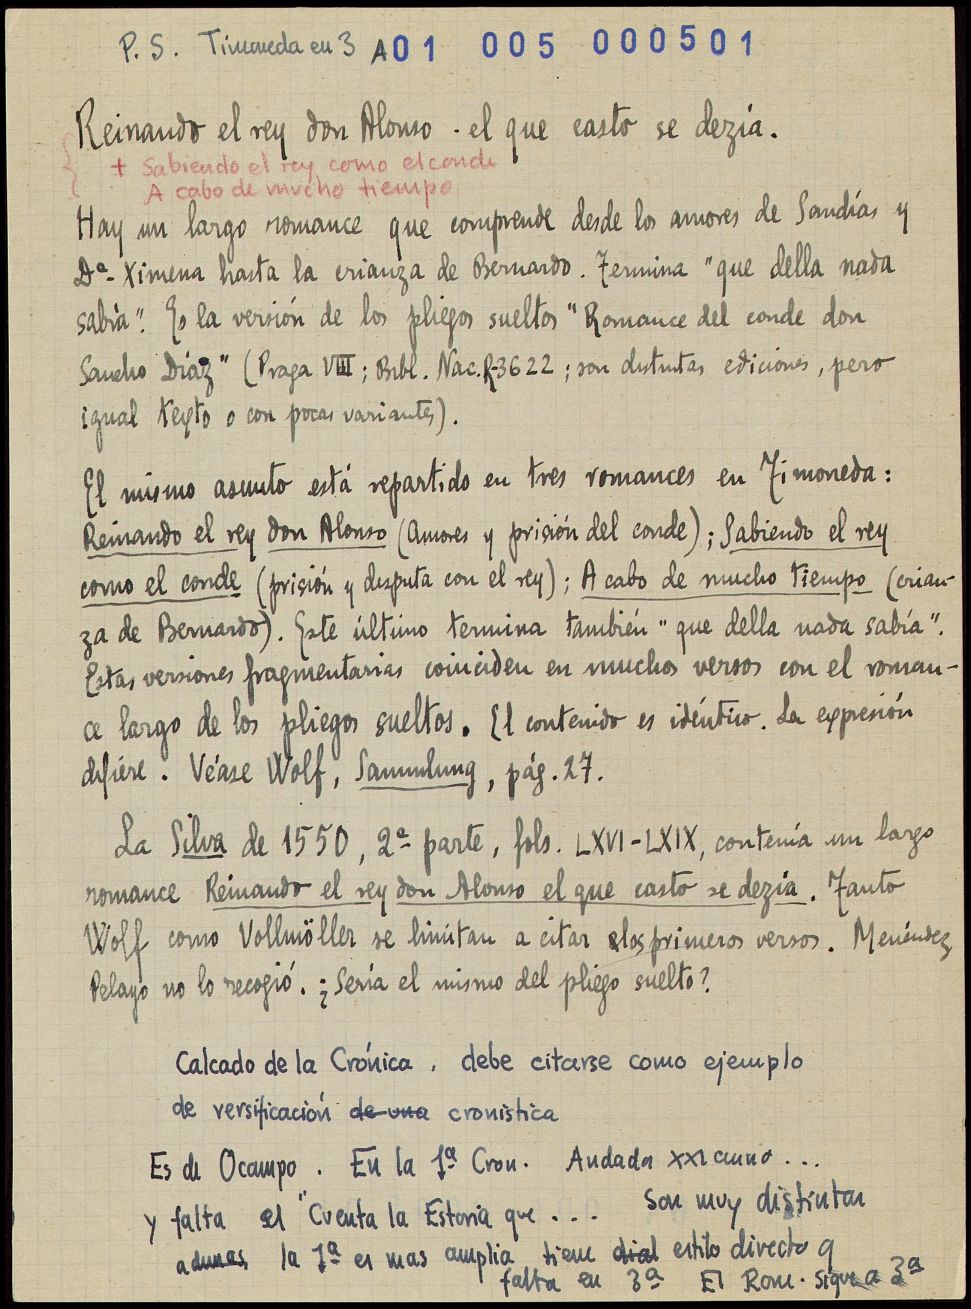 P. S. Timoneda en 3 A01 005 000501
Reinando el rey don Alonso - el que casto se dezía.
+ Sabiendo el rey como el conde
A cabo de mucho tiempo
Hay un largo romance que comprende desde los amores de Sandías y
Dª Ximena hasta la crianza de Bernardo. Termina "que della nada
sabía". Es la versión de los pliegos sueltos "Romance del conde don
Sancho Díaz" (Praga VIII; Bibl. Nac. R-3622; son distintas ediciones, pero
igual texto o con pocas variantes).
El mismo asunto está repartido en tres romances en Timoneda:
Reinando el rey don Alonso (Amores y prisión del conde); Sabiendo el rey
como el conde (prisión y disputa con el rey); A cabo de mucho tiempo (crian-
za de Bernardo). Este último termina también "que della nada sabía".
Estas versiones fragmentarias coinciden en muchos versos con el roman-
ce largo de los pliegos sueltos. El contenido es idéntico. La expresión
difiere. Véase Wolf, Sammlung, pág. 27.
La Silva de 1550, 2ª parte, fols. LXVI-LXIX, contenía un largo
romance Reinando el rey don Alonso el que casto se dezía. Tanto
Wolf como Vollmöller se limitan a citar los primeros versos. Menéndez
Pelayo no lo recogió. ¿Sería el mismo del pliego suelto?
Calcado de la Crónica. debe citarse como ejemplo
de versificación de una cronistica
Es de Ocampo. En la 1ª Cron. Andada XXI anno ...
y falta el "Cuenta la Estoria que ... Son muy distintas
ademas la 1ª es mas amplia tiene dial estilo directo q
falta en 3ª El Rom. sigue a 3ª